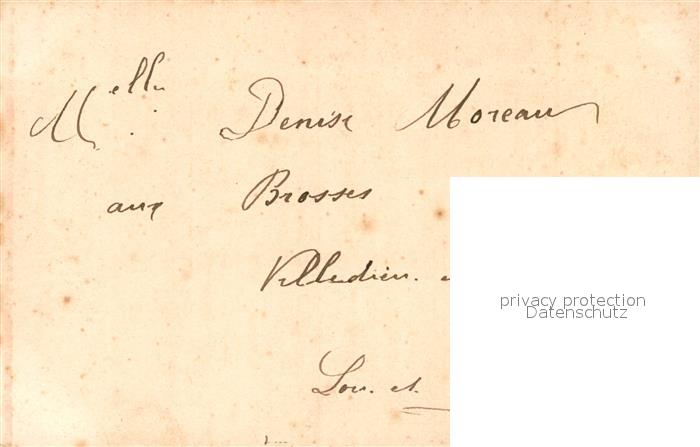 Melle Denise Moreau
aux Brosses
Villedieu.
privacy protection
Datenschutz
Loir. et.